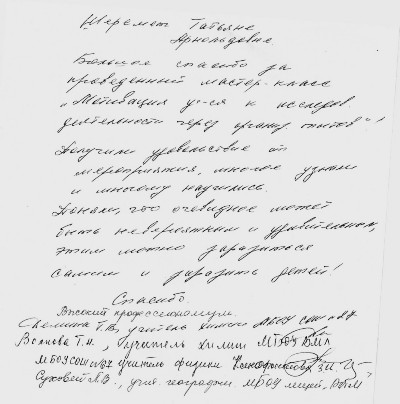 Шеремет Татьяне
Арнольдовне.
Большое спасибо за
проведенный мастер-класс
"Мотивация у-ся к исследов.
деятельности через организ. опытов"!
Получили удовольствие от
мероприятия, многое узнали
и многому научились.
Поняли, что очевидное может
быть невероятным и удивительным,
этим можно заразиться
самим и заразить детей!
Спасибо.
Высокий профессионализм.
Т.В., учитель химии МБОУ СОШ
Т.Н., учитель химии МТЮУ БМЛ
МБОУСОШ №7 учитель физики
Суховей Л.В., учит. географии МБОУ лицей,